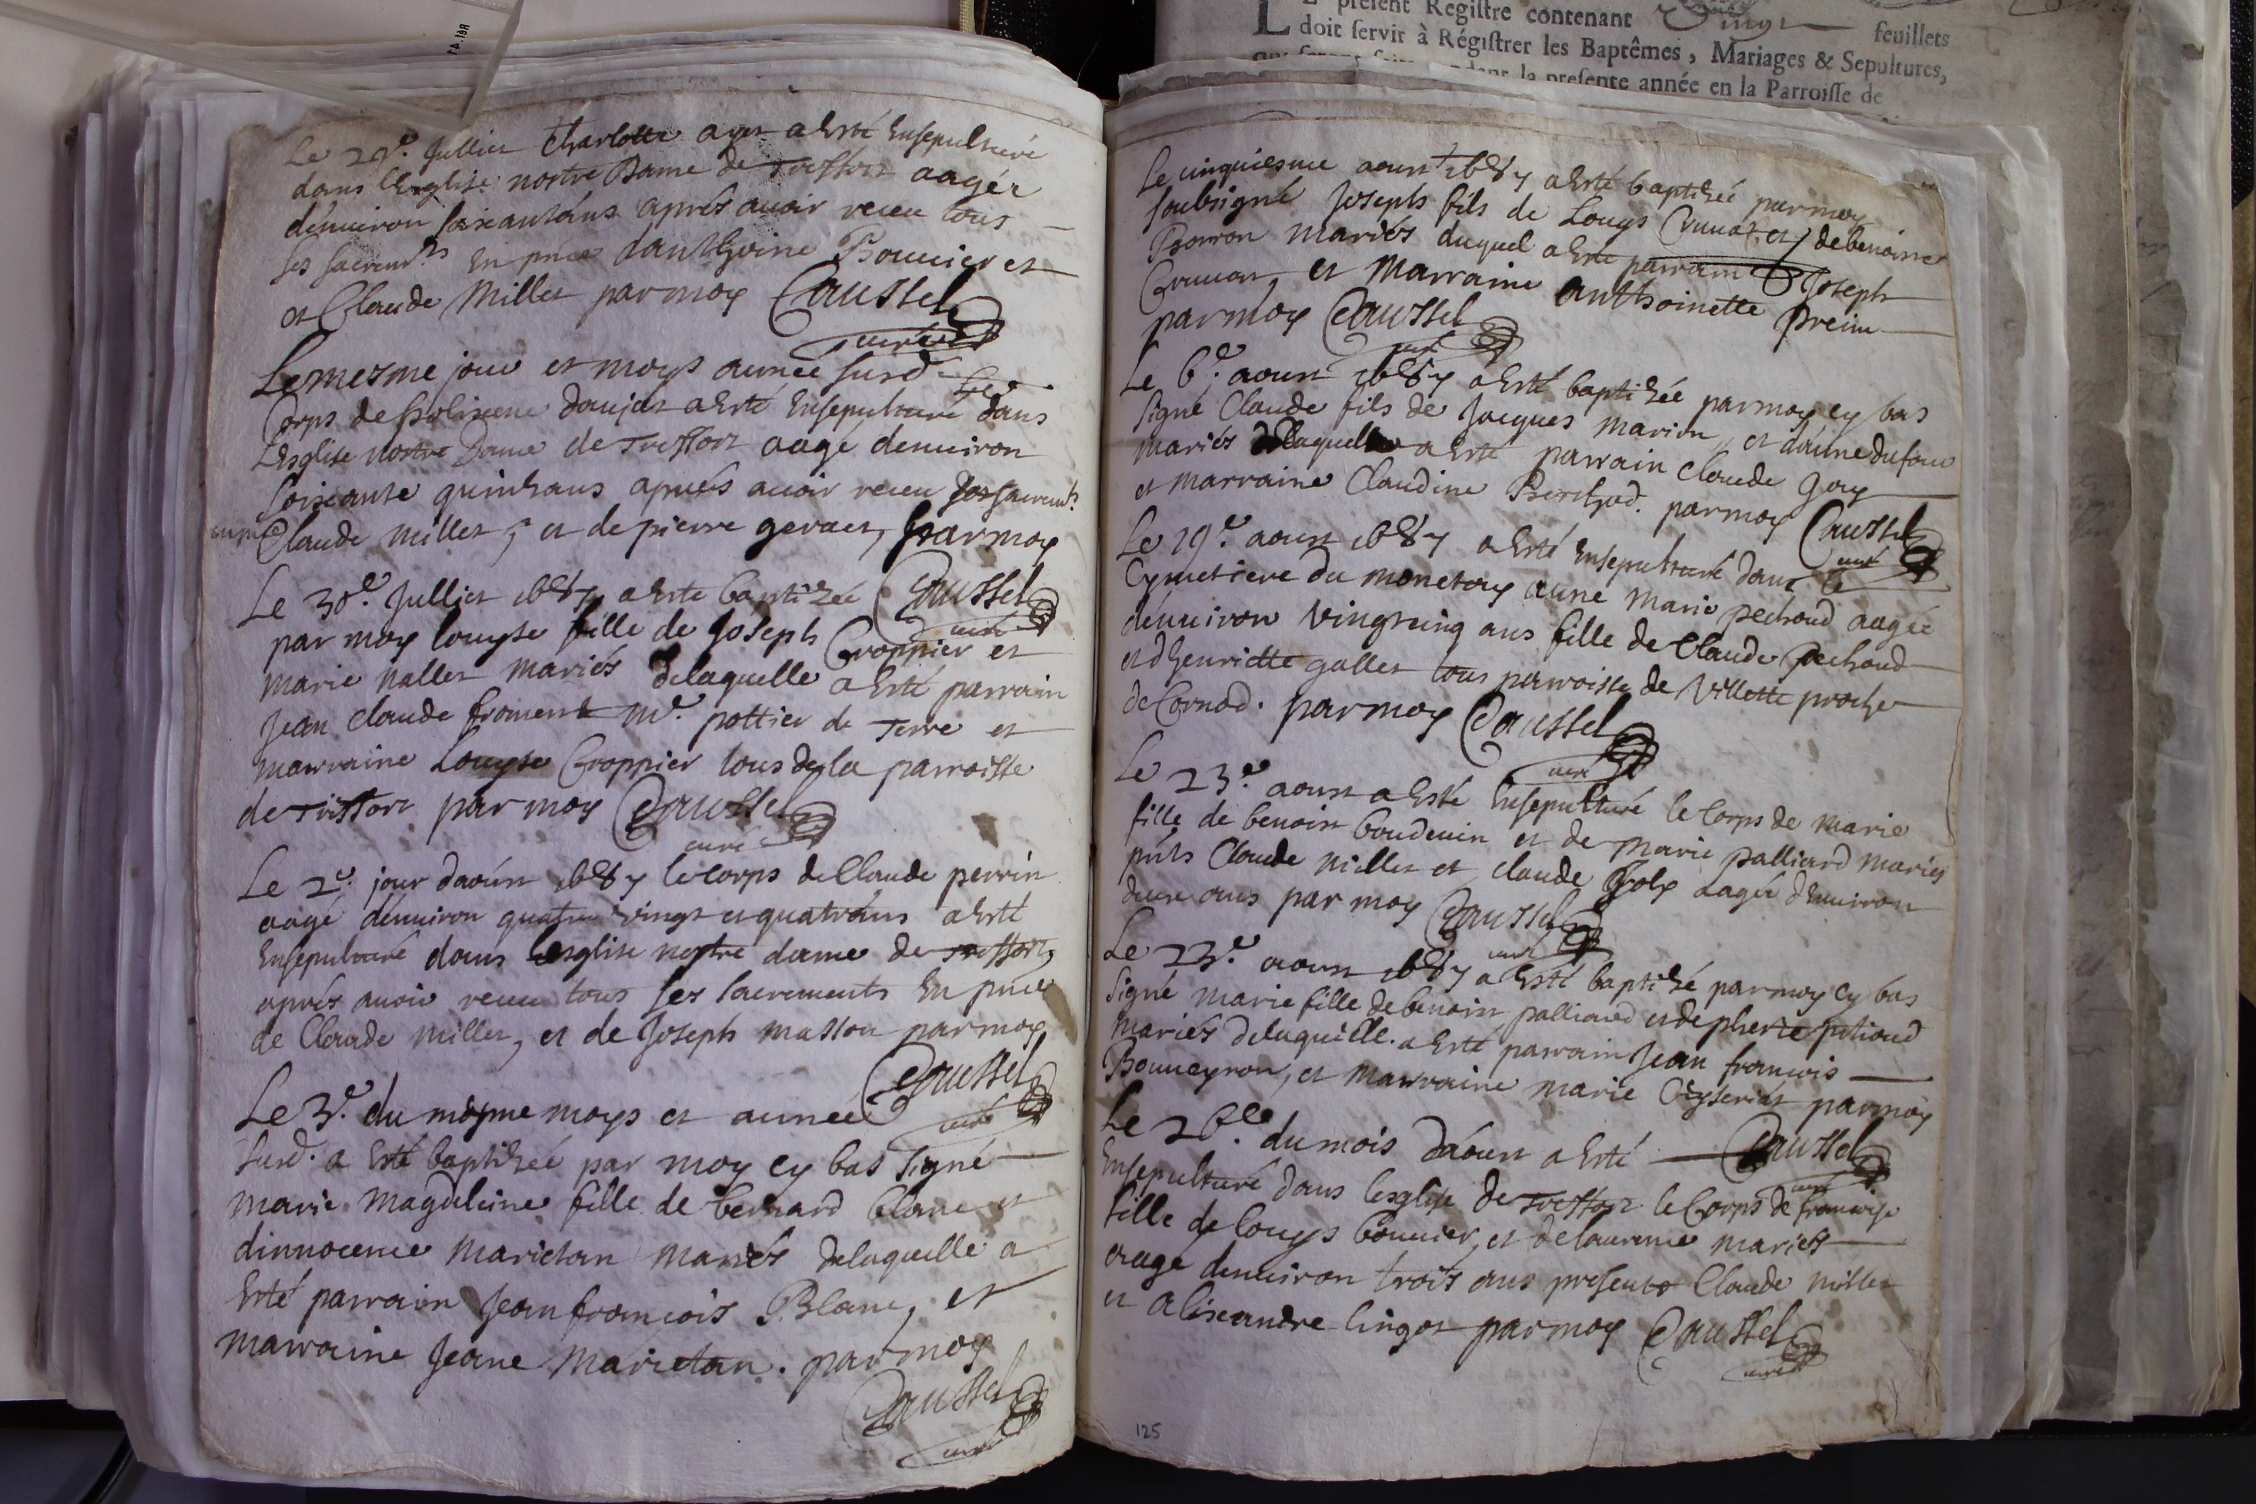 Le 29e. Jullier Charlotte ayer a Esté Ensepulturé
dans l'Esglise nostre Dame de Treffort aagée
dénuiron soixantáns aprés auoir receu tous
ses sacremts En pnce danthoine Bouuier et
et Claude Millet par moy Caussel
curé
Le mesme jour et moys année susd. Le
Corps de donjat a Esté Ensepulturé dans
L'Esglise nostre Dame de Treffort aagé denuiron
soixante quinzans aprés auoir receu ses sacremts
en pnce Claude millet, et de pierre gervaet, par moy
Caussel
curé
Le 30e. Jullier 1687 a Esté baptizée
par moy louyse fille de Joseph Croppier et
marie nallet mariés delaquelle a Esté parrain
Jean claude froment Me. pottier de Terre et
marraine Louyse Croppier tous de la parroisse
de Treffort par moy Caussel
curé
Le 2e. jour daoúst 1687 le corps de Claude perrin
aagé dénuiron quatre vingt et quatráns a Esté
Ensepulturé dans lesglise nostre dame de Treffort,
aprés auoir receu tous ses sacrements En pnce
de Claude millet, et de Joseph masson par moy
Caussel
curé
Le 3e. du mesme moys et année
susd. a Esté baptizée par moy cy bas signé
marie magdeleine fille de bernard blanc et
dinnocence marietan mariés delaquelle a
Esté parrain Jean françois Blanc, et
marraine Jeane marietan. par moy
Caussel
curé
L E present Registre contenant vingt feuillets
doit servir à Régistrer les Baptêmes, Mariages & Sepultures,
la presente année en la Parroisse de
Le cinquiesme aoust 1687 a Esté baptizée par moy
soubsigné Joseph fils de Louys Cruuat et de benoiste
Borron mariés duquel a Esté parrain Joseph
Cruuat, et marraine anthoinette preim
par moy Caussel
curé
Le 6e. aoust 1687 a Esté baptizée par moy cy bas
signé Claude fils de Jacques marion, et dánne dufour
mariés delaquelle a Esté parrain claude goy
et marraine Claudine Berchod. par moy Caussel
curé
Le 19e. aoust 1687 a Esté Ensepulturé dans le
Cymetiere du monetay anne marie pechoud aagée
dénuiron vingtcinq ans fille de Claude pechoud
et dhenriette gallet tous parroisse de Villette proche
de Cornod. par moy Caussel
curé
Le 23e. aoust a Esté Ensepulturé le Corps de marie
fille de benoist boudeuin et de marie palliard mariés
pnts Claude millet et claude Joly aagée d'Enuiron
deux ans par moy Caussel
curé
Le 23e. aoust 1687 a Esté baptizé par moy cy bas
signé marie fille de benoist palliard et de pierrete petioud
mariés delaquelle. a Esté parrain Jean francois
Bouueyron, et marraine marie Ceyseriat par moy
Caussel
curé
Le 26e. du mois dáoust a Esté
Ensepulturé dans lesglise de Treffort le Corps de françoise
fille de louys bouuier, et de laurence mariés
aagé denuiron trois ans presents Claude millet
et alixandre lingot par moy Caussel
curé
125